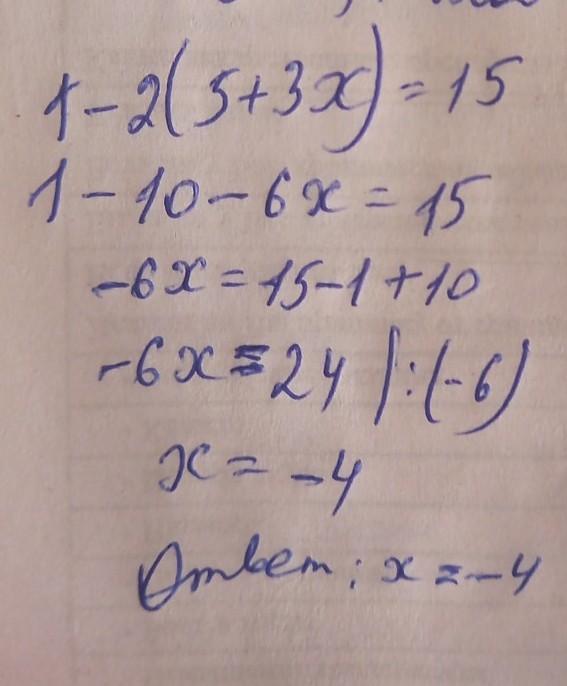 1-2(5+3x)=15
1-10-6x=15
-6x=15-1+10
-6x=24 |:(-6)
x=-4
Ответ: x=-4